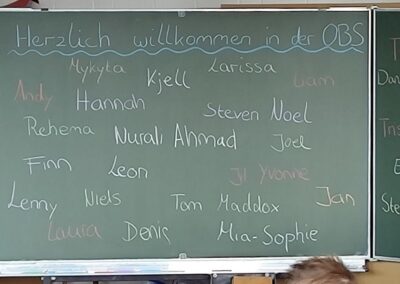 Herzlich willkommen in der OBS
Mykyta Kjell Larissa Liam
Andy Hannah Steven Noel
Rehema Nurali Ahmad Joel
Finn Leon Yvonne
Lenny Niels Tom Maddox Jan
Laura Denis Mia-Sophie